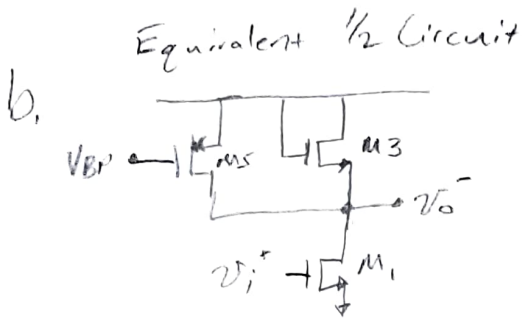 Equivalent 1/2 Circuit
b.
VBP
M5
M3
vo-
vi+
M1